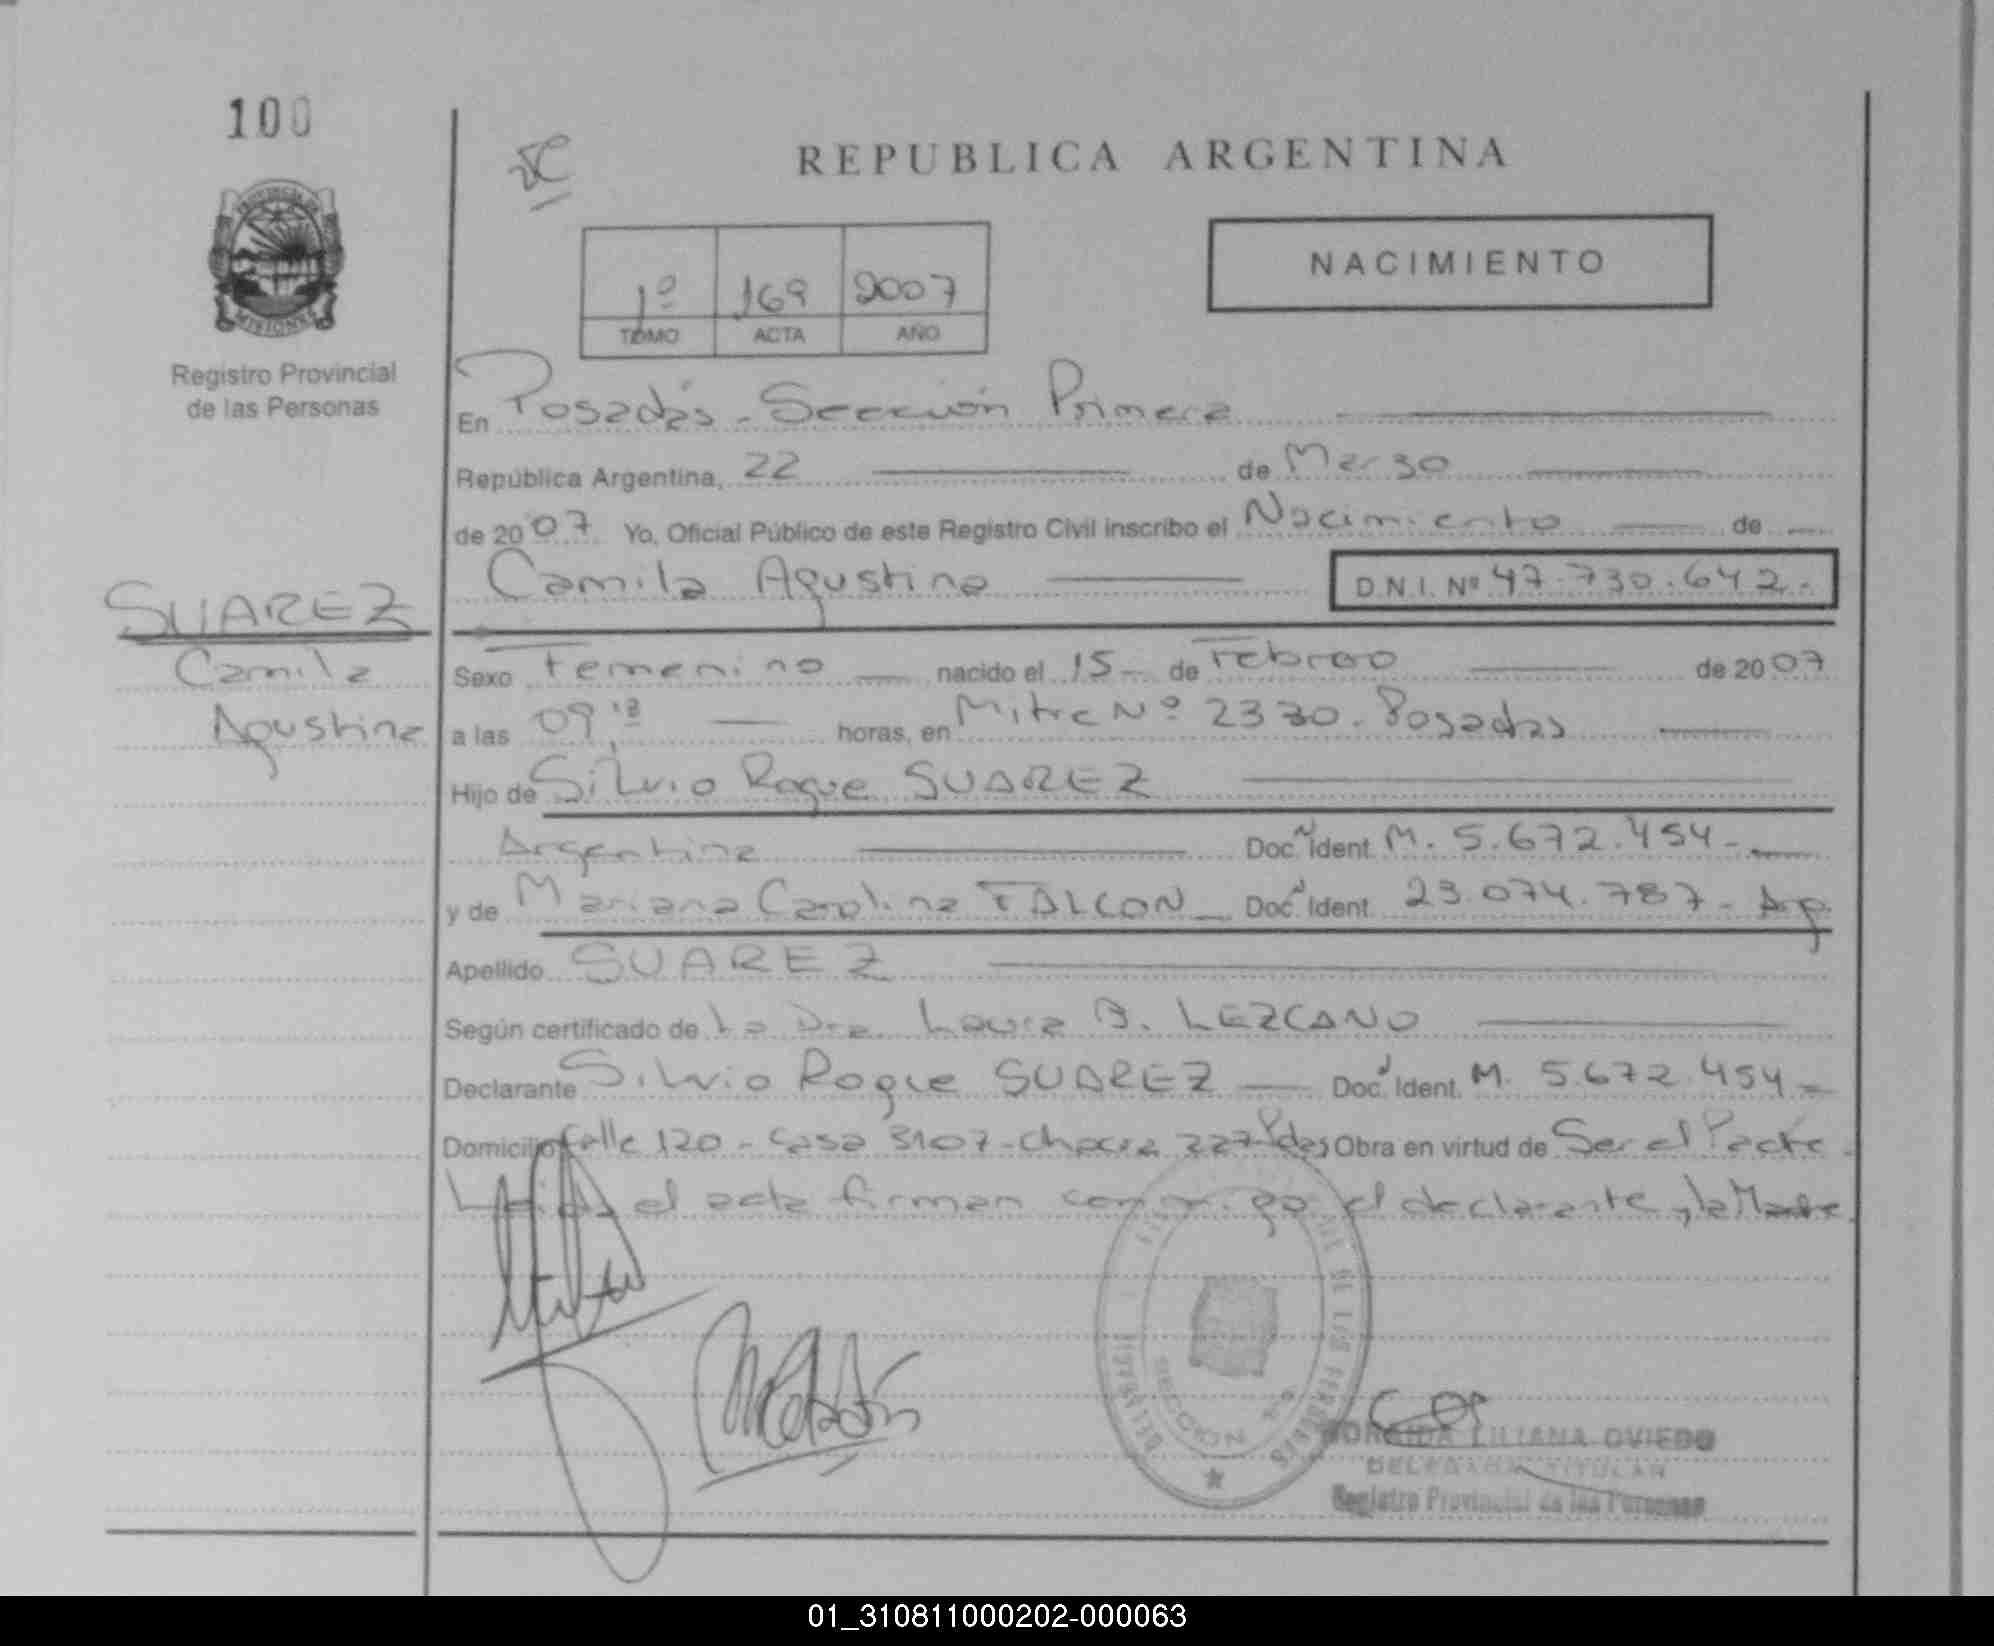 100
PROVINCIA DE
MISIONES
Registro Provincial
de las Personas
REPUBLICA ARGENTINA
1º 169 2007
TOMO ACTA AÑO
NACIMIENTO
En Posadas - Sección Primera
República Argentina, 22 de Marzo
de 2007 Yo, Oficial Público de este Registro Civil inscribo el Nacimiento de
Camila Agustina D.N.I. Nº 47.730.642.-
SUAREZ
Camila
Agustina
Sexo Femenino nacido el 15 - de Febrero de 2007
a las 09, horas, en Mitre Nº 2330. Posadas
Hijo de Silvio Roque SUAREZ
Argentina Doc. Ident. M. 5.672.454-
y de Mariana Carolina FALCON Doc. Ident. 23.074.787 - Arg.
Apellido SUAREZ
Según certificado de La Dra. Laura B. LEZCANO
Declarante Silvio Roque SUAREZ Doc. Ident. M. 5.672.454-
Domicilio Calle 120 - Casa 3107 - Chacra 227 Pdas Obra en virtud de Ser el Padre
Leída el acta firman conmigo el declarante y la Madre.
DE LAS PERSONAS
SECCION
LILIANA OVIEDO
DELEGADA TITULAR
Registro Provincial de las Personas
01_310811000202-000063